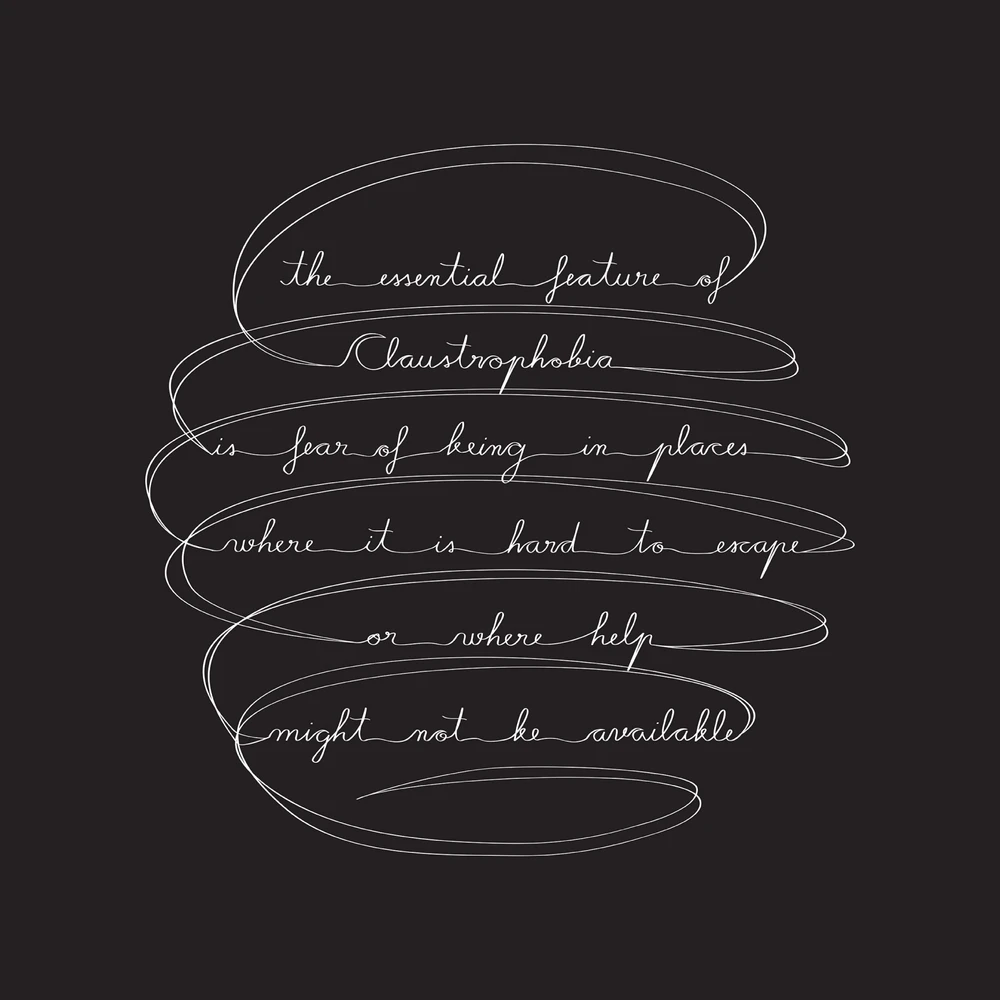 the essential feature of
Claustrophobia
is fear of being in places
where it is hard to escape
or where help
might not be available